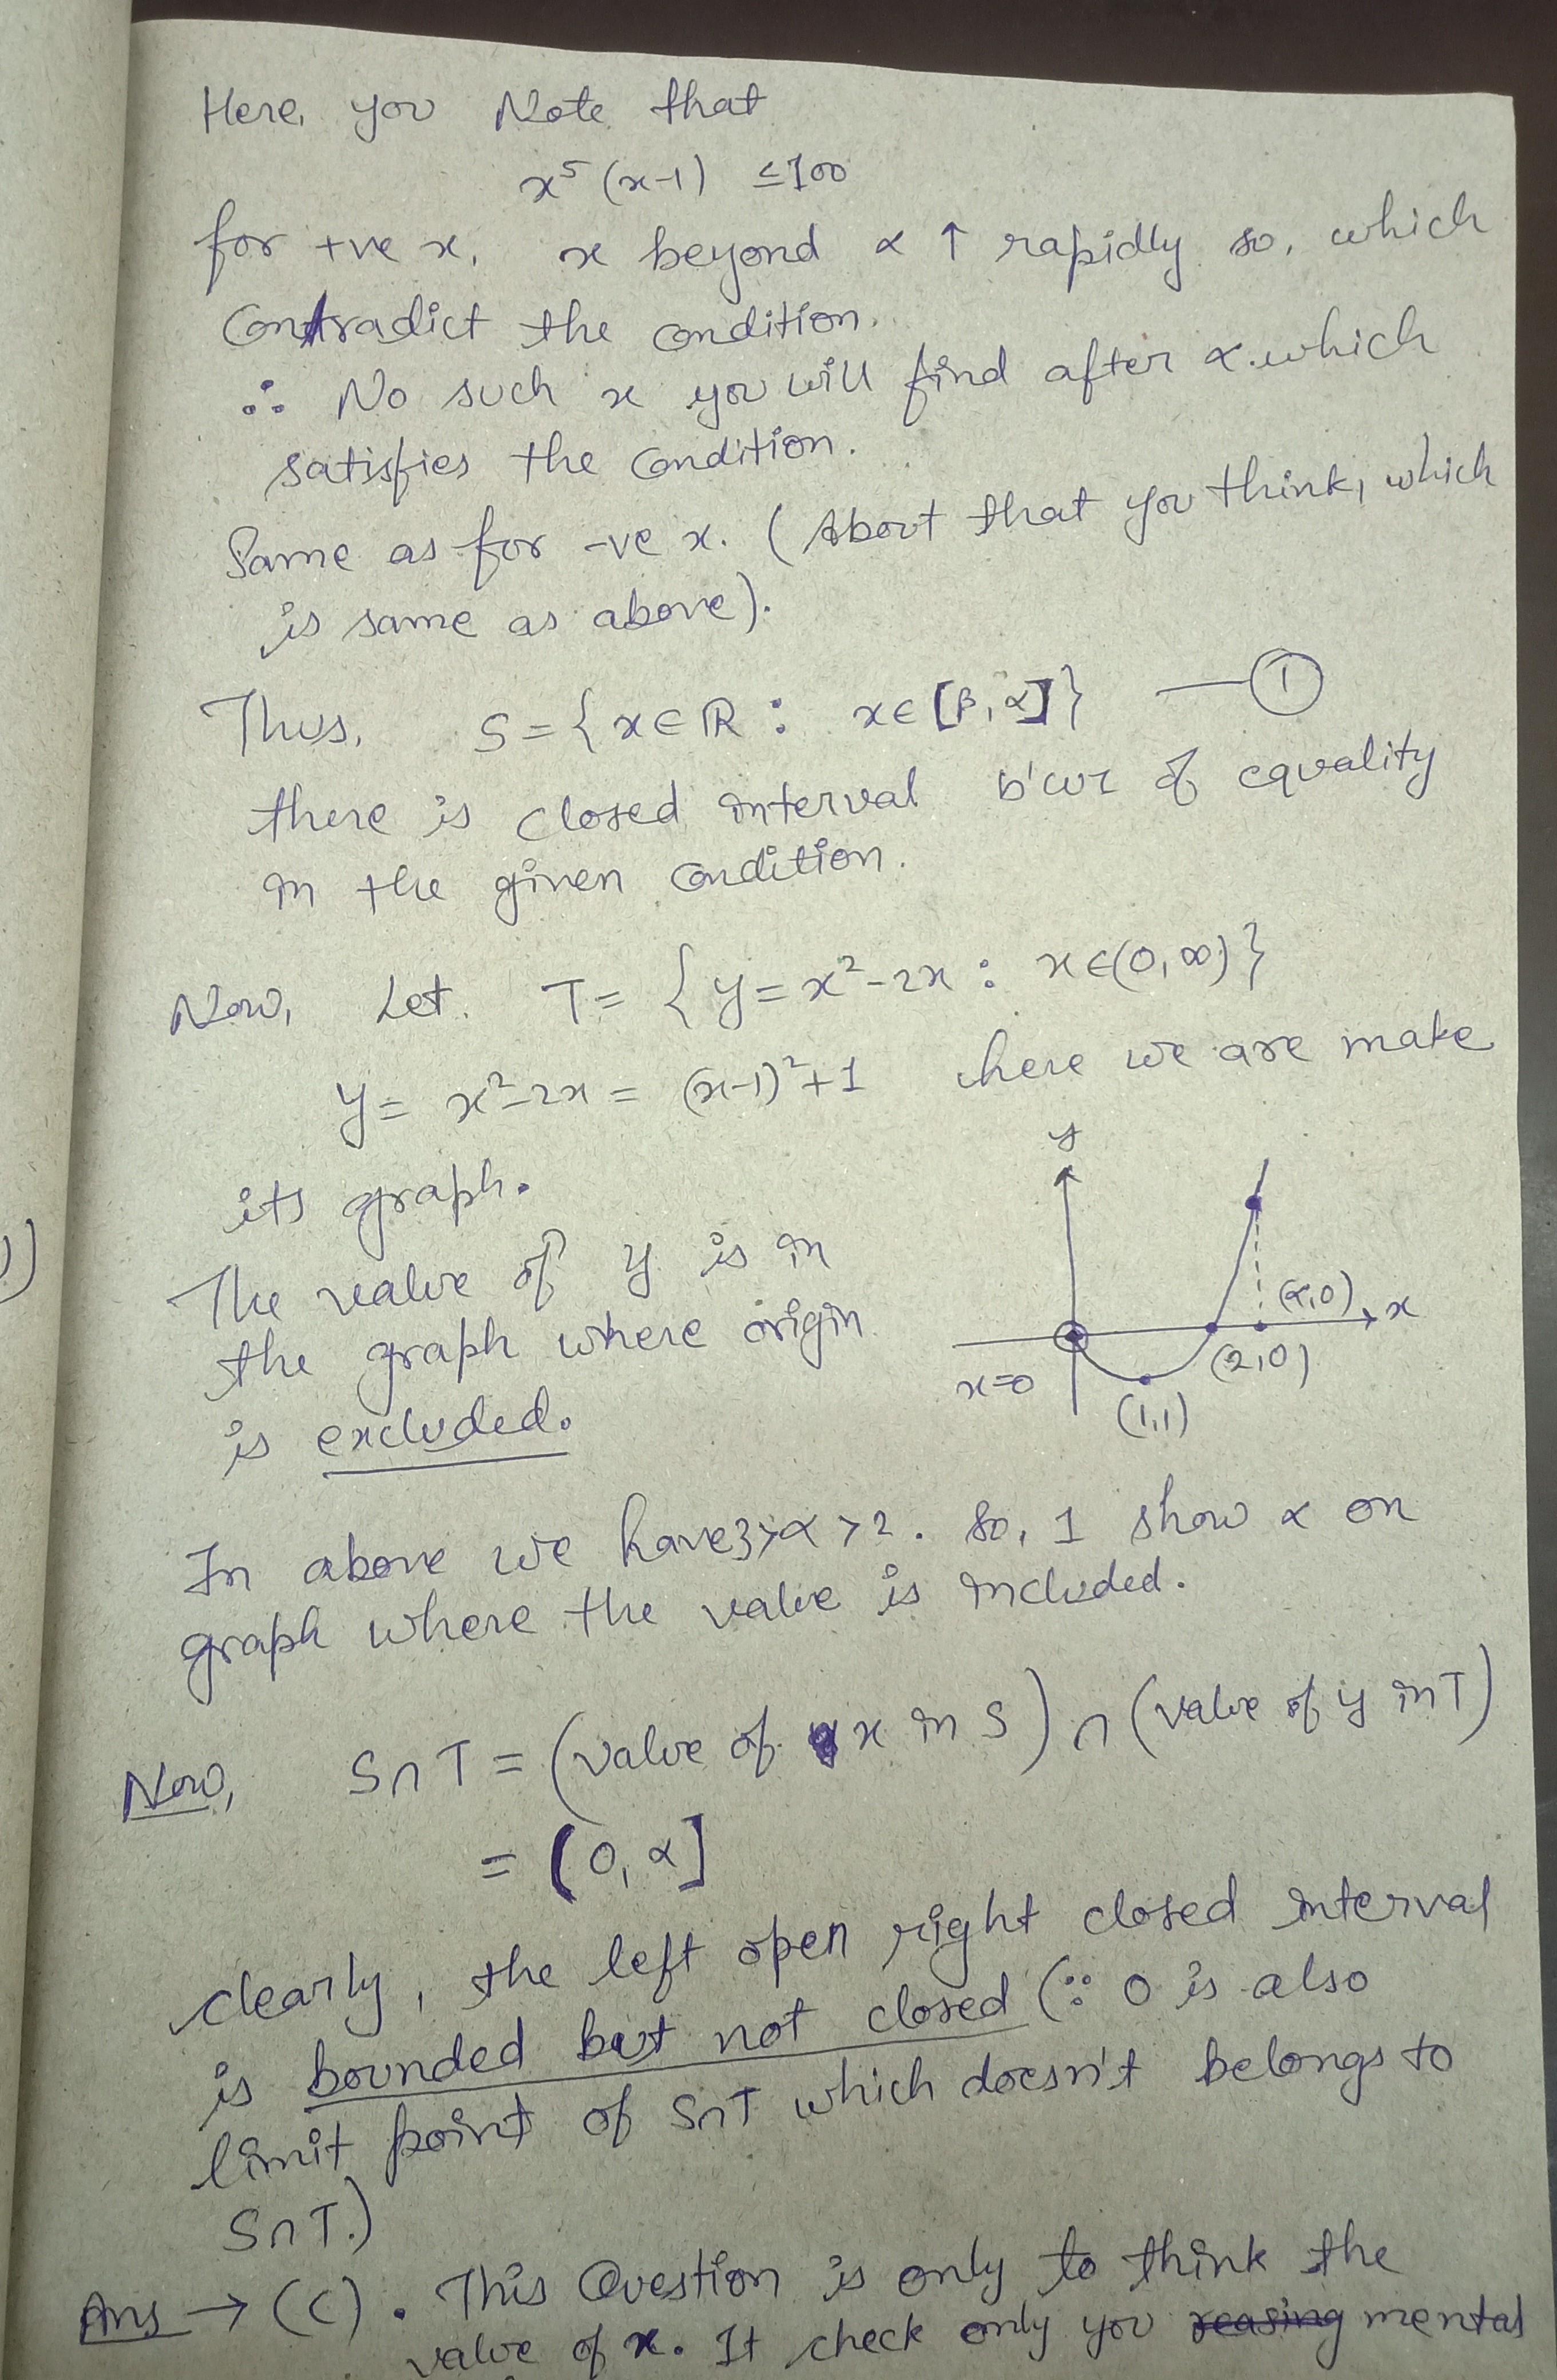 Here, you Note that
x⁵(x-1) ≤ 100
for +ve x, x beyond α ↑ rapidly so, which
Contradict the condition.
∴ No such x you will find after α which
satisfies the condition.
Same as for -ve x. (About that you think, which
is same as above).
Thus, S = { x ∈ ℝ : x ∈ [β, α] } —①
there is closed interval b'coz of equality
in the given condition.
Now, Let T = { y = x²-2x : x ∈ (0, ∞) }
y = x²-2x = (x-1)²+1 here we are make
its graph.
y
The value of y is in
the graph where origin
is excluded.
(α,0) x
x=0 (2,0)
(1,1)
In above we have 3>α>2. So, I show α on
graph where the value is included.
Now, S∩T = (value of x in S) ∩ (value of y in T)
= (0, α]
clearly, the left open right closed interval
is bounded but not closed (∵ 0 is also
limit point of S∩T which doesn't belongs to
S∩T.)
Ans → (C). This Question is only to think the
value of x. It check only you mental